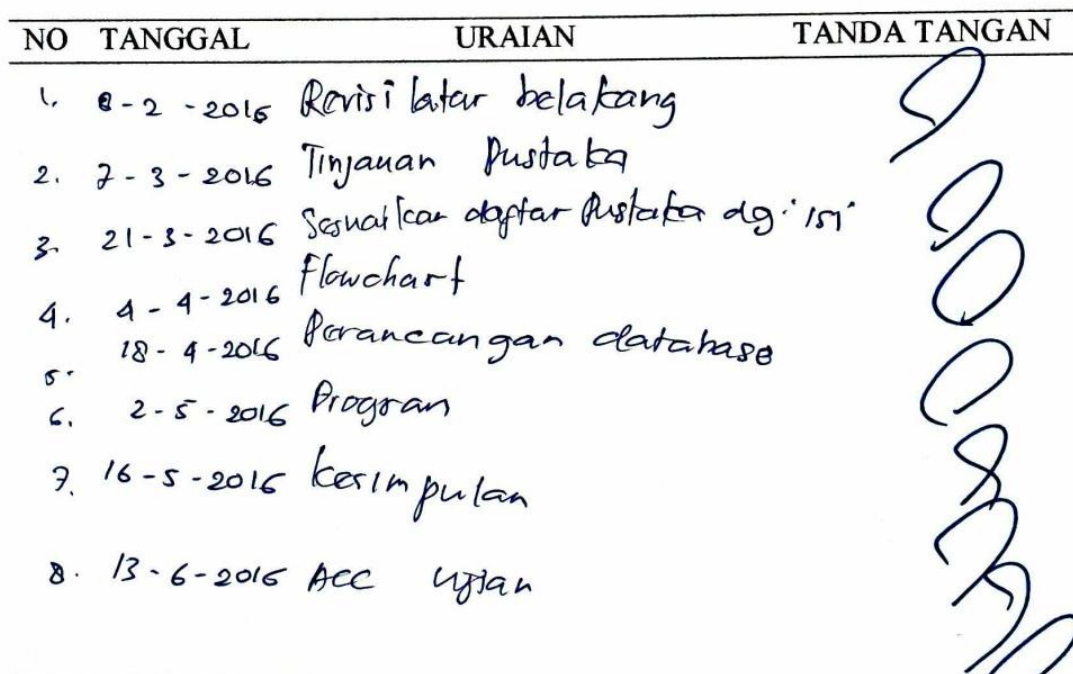 NO TANGGAL URAIAN TANDA TANGAN
1. 8-2-2016 Revisi latar belakang
2. 7-3-2016 Tinjauan Pustaka
3. 21-3-2016 Sesuaikan daftar Pustaka dg. isi
4. 4-4-2016 Flowchart
5. 18-4-2016 Perancangan database
6. 2-5-2016 Program
7. 16-5-2016 Kesimpulan
8. 13-6-2016 ACC ujian